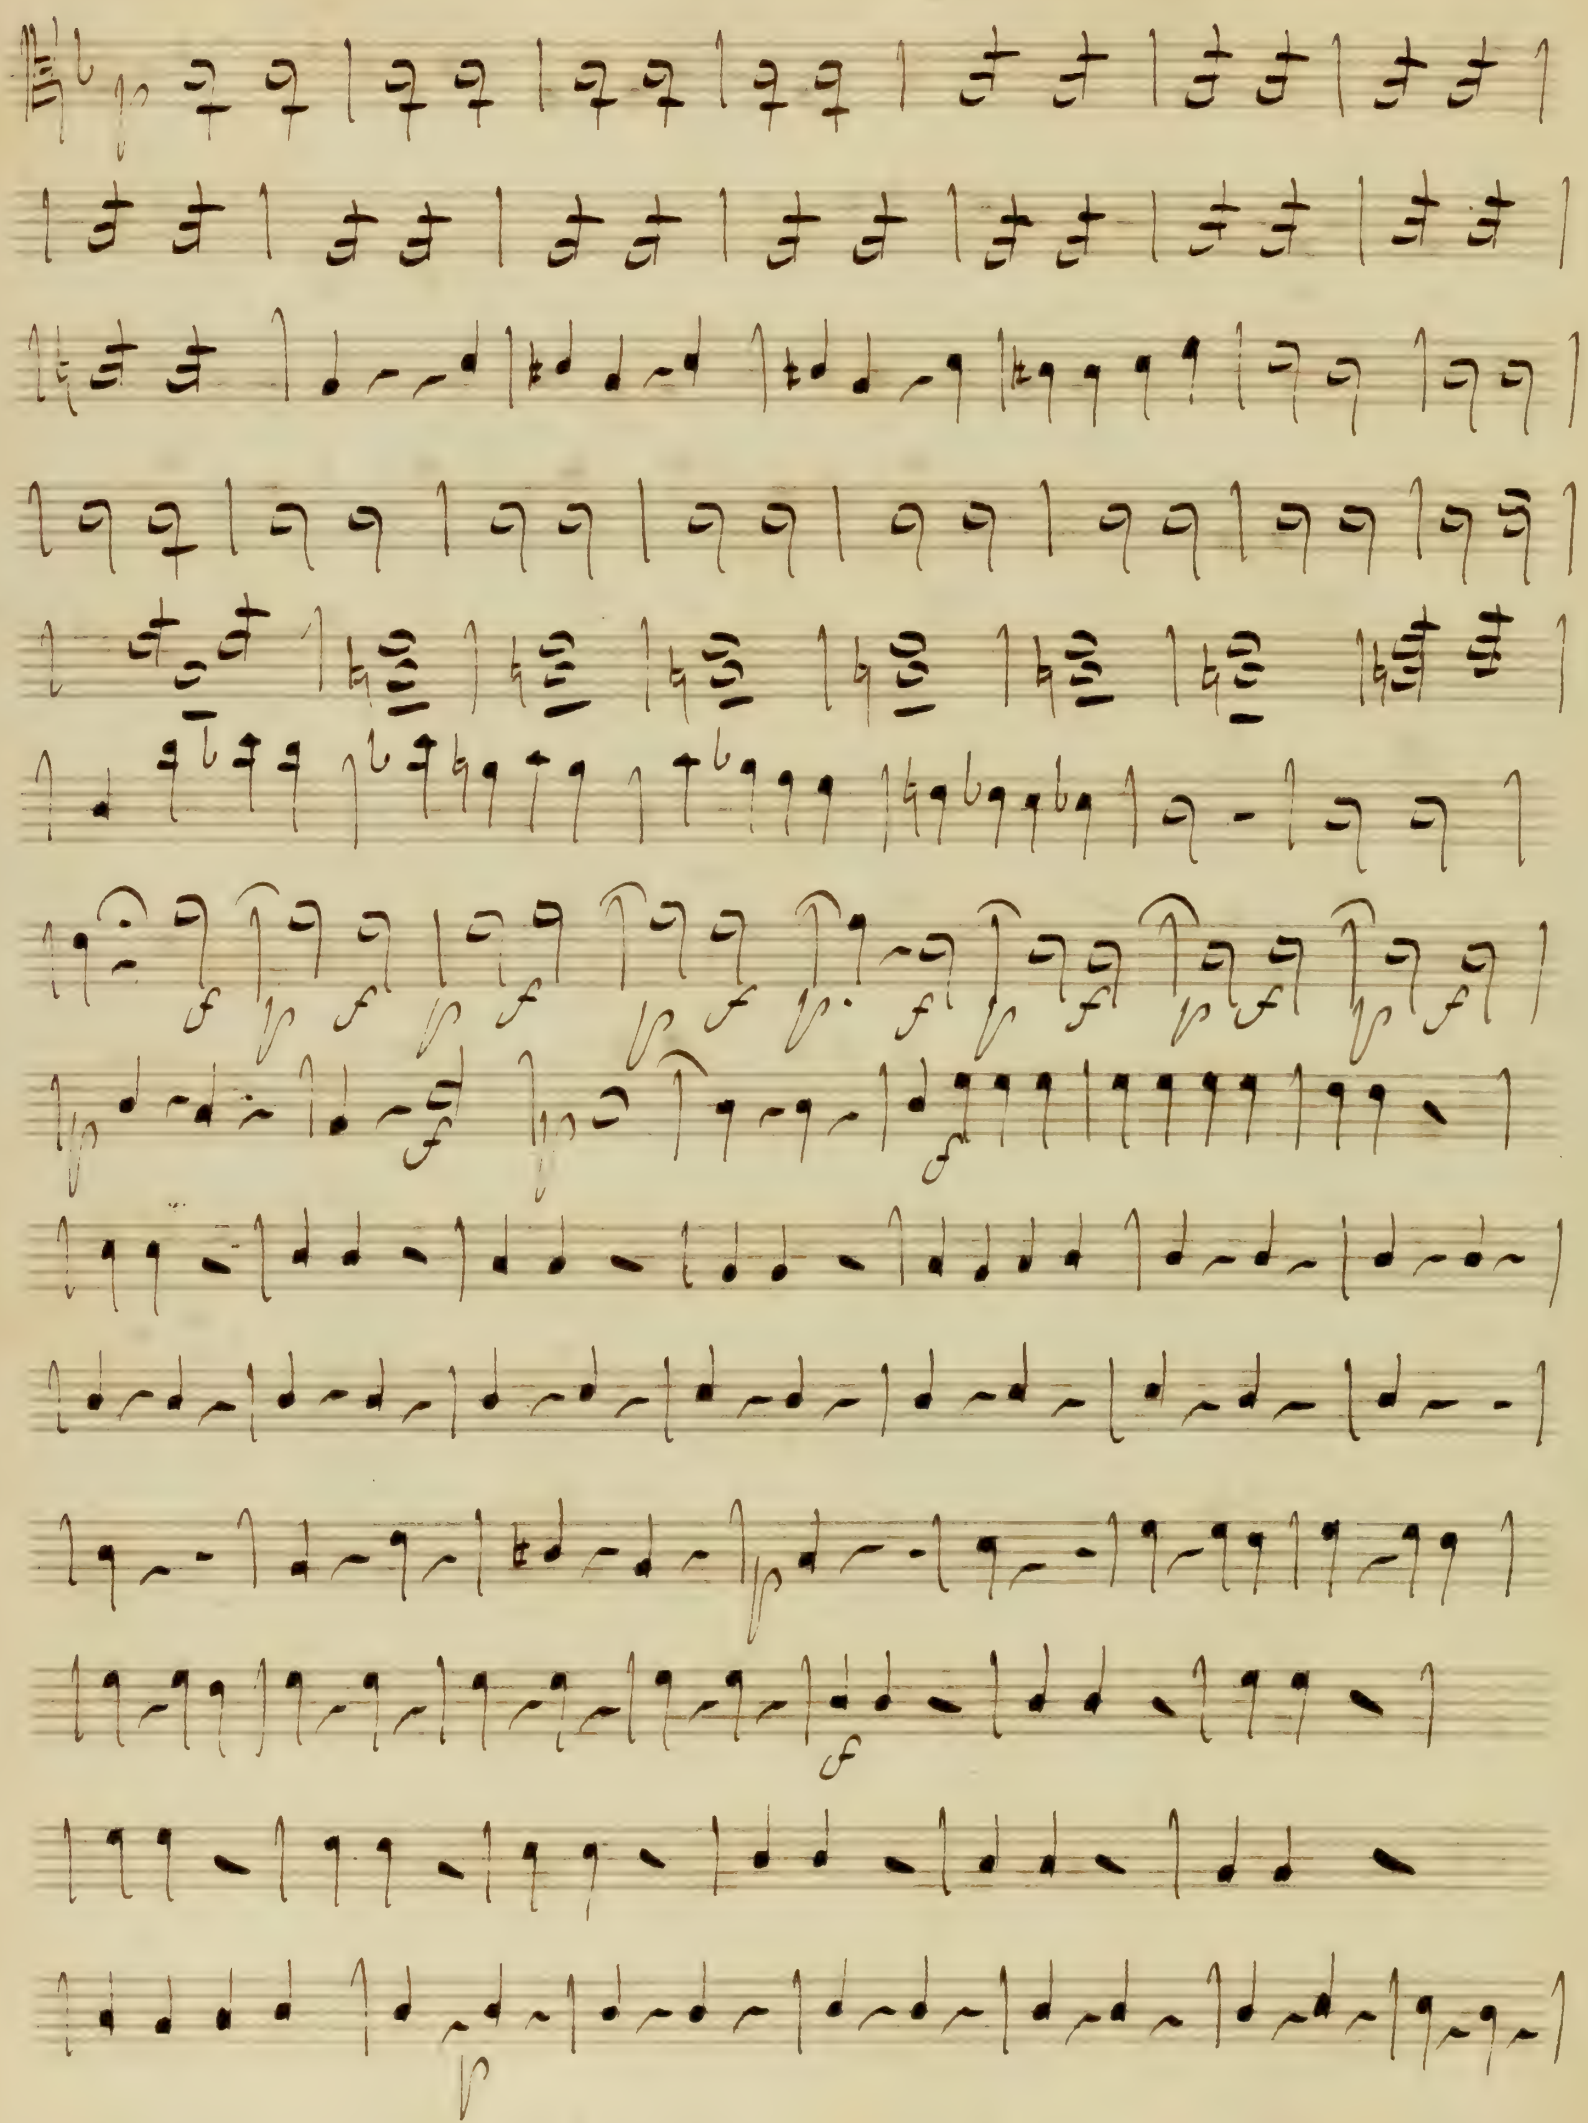 p
f p f p f p f p. f p f p f p f
p f p f
p
f
p